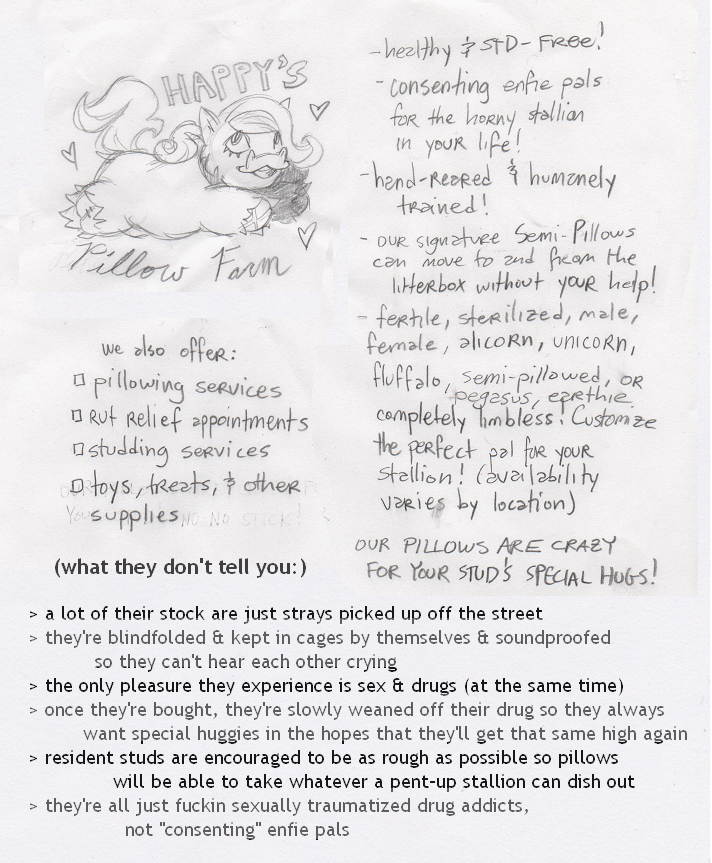 HAPPY'S
Pillow Farm
we also offer:
pillowing services
RUT Relief appointments
studding services
toys, treats, & other
supplies
NO NO STICK!
- healthy & STD-FREE!
- consenting enfie pals
for the horny stallion
in your life!
- hand-reared & humanely
trained!
- our signature Semi-Pillows
can move to and from the
litterbox without your help!
- fertile, sterilized, male,
female, alicorn, unicorn,
fluffalo, semi-pillowed, or
pegasus, earthie
completely limbless! Customize
the perfect pal for your
stallion! (availability
varies by location)
OUR PILLOWS ARE CRAZY
FOR YOUR STUD'S SPECIAL HUGS!
(what they don't tell you:)
> a lot of their stock are just strays picked up off the street
> they're blindfolded & kept in cages by themselves & soundproofed
so they can't hear each other crying
> the only pleasure they experience is sex & drugs (at the same time)
> once they're bought, they're slowly weaned off their drug so they always
want special huggies in the hopes that they'll get that same high again
> resident studs are encouraged to be as rough as possible so pillows
will be able to take whatever a pent-up stallion can dish out
> they're all just fuckin sexually traumatized drug addicts,
not "consenting" enfie pals